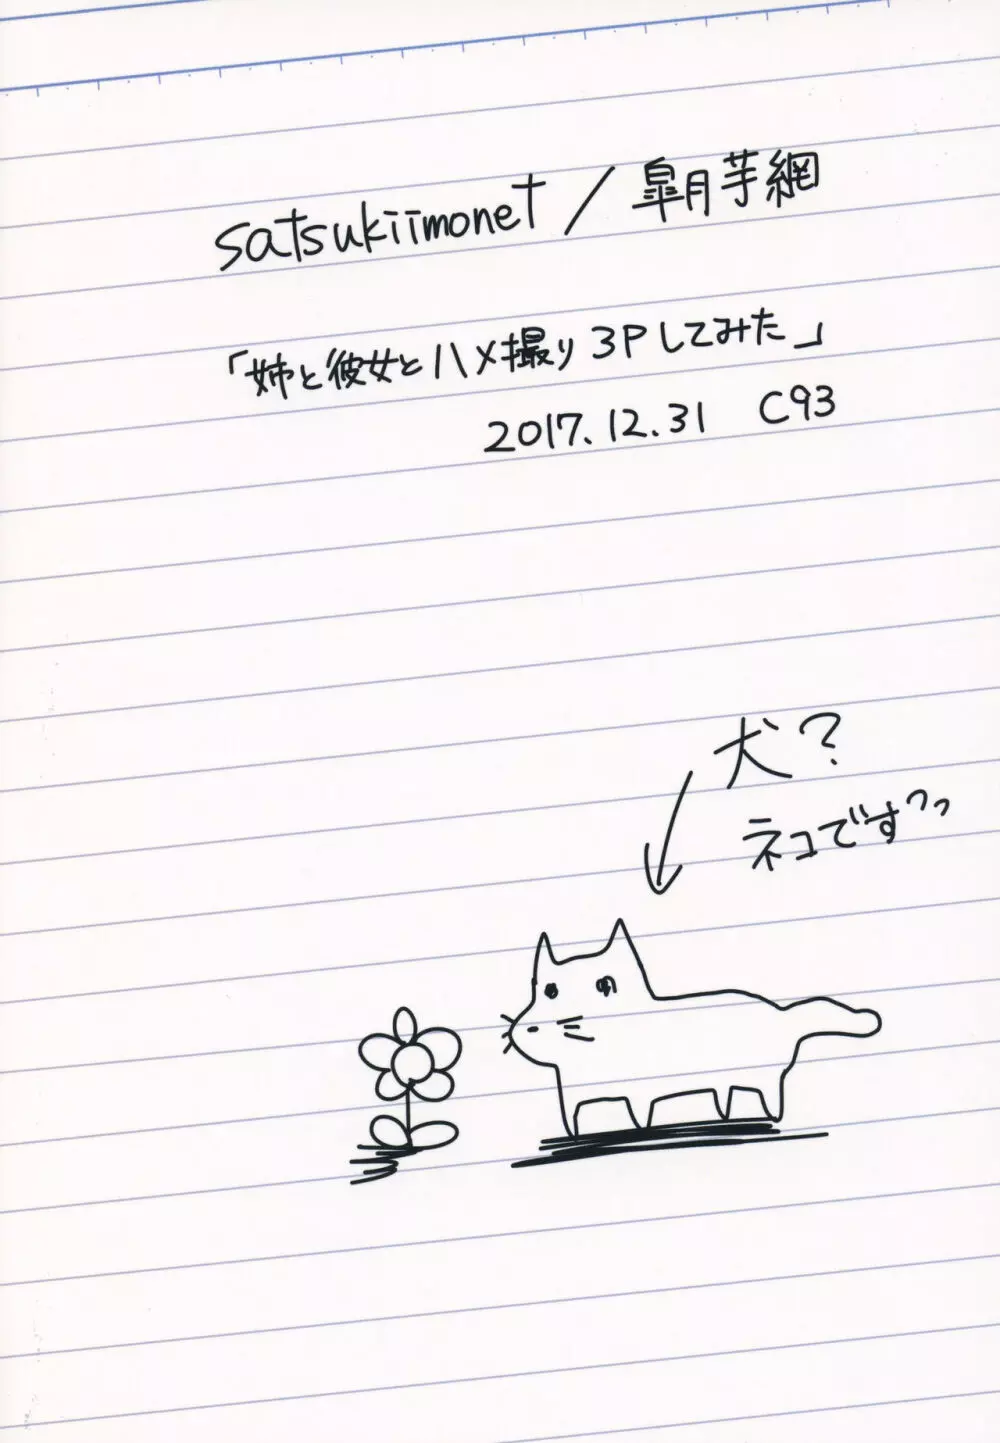 satsukiimonet / 皐月芋網
「姉と彼女とハメ撮り3Pしてみた」
2017.12.31 C93
犬?
ネコですワワ